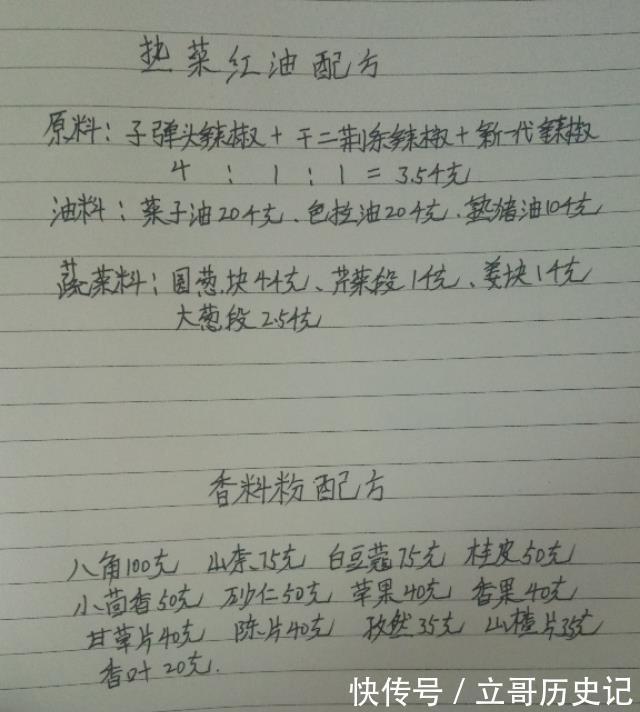 热菜红油配方
原料：子弹头辣椒+干二荆条辣椒+新一代辣椒
4：1：1=3.5千克
油料：菜子油20千克、色拉油20千克、熟猪油10千克
蔬菜料：圆葱块4千克、芹菜段1千克、姜块1千克
大葱段2.5千克
香料粉配方
八角100克 山柰75克 白豆蔻75克 桂皮50克
小茴香50克 砂仁50克 草果40克 香果40克
甘草片40克 陈片40克 孜然35克 山楂片35克
香叶20克.
快传号/立哥历史记